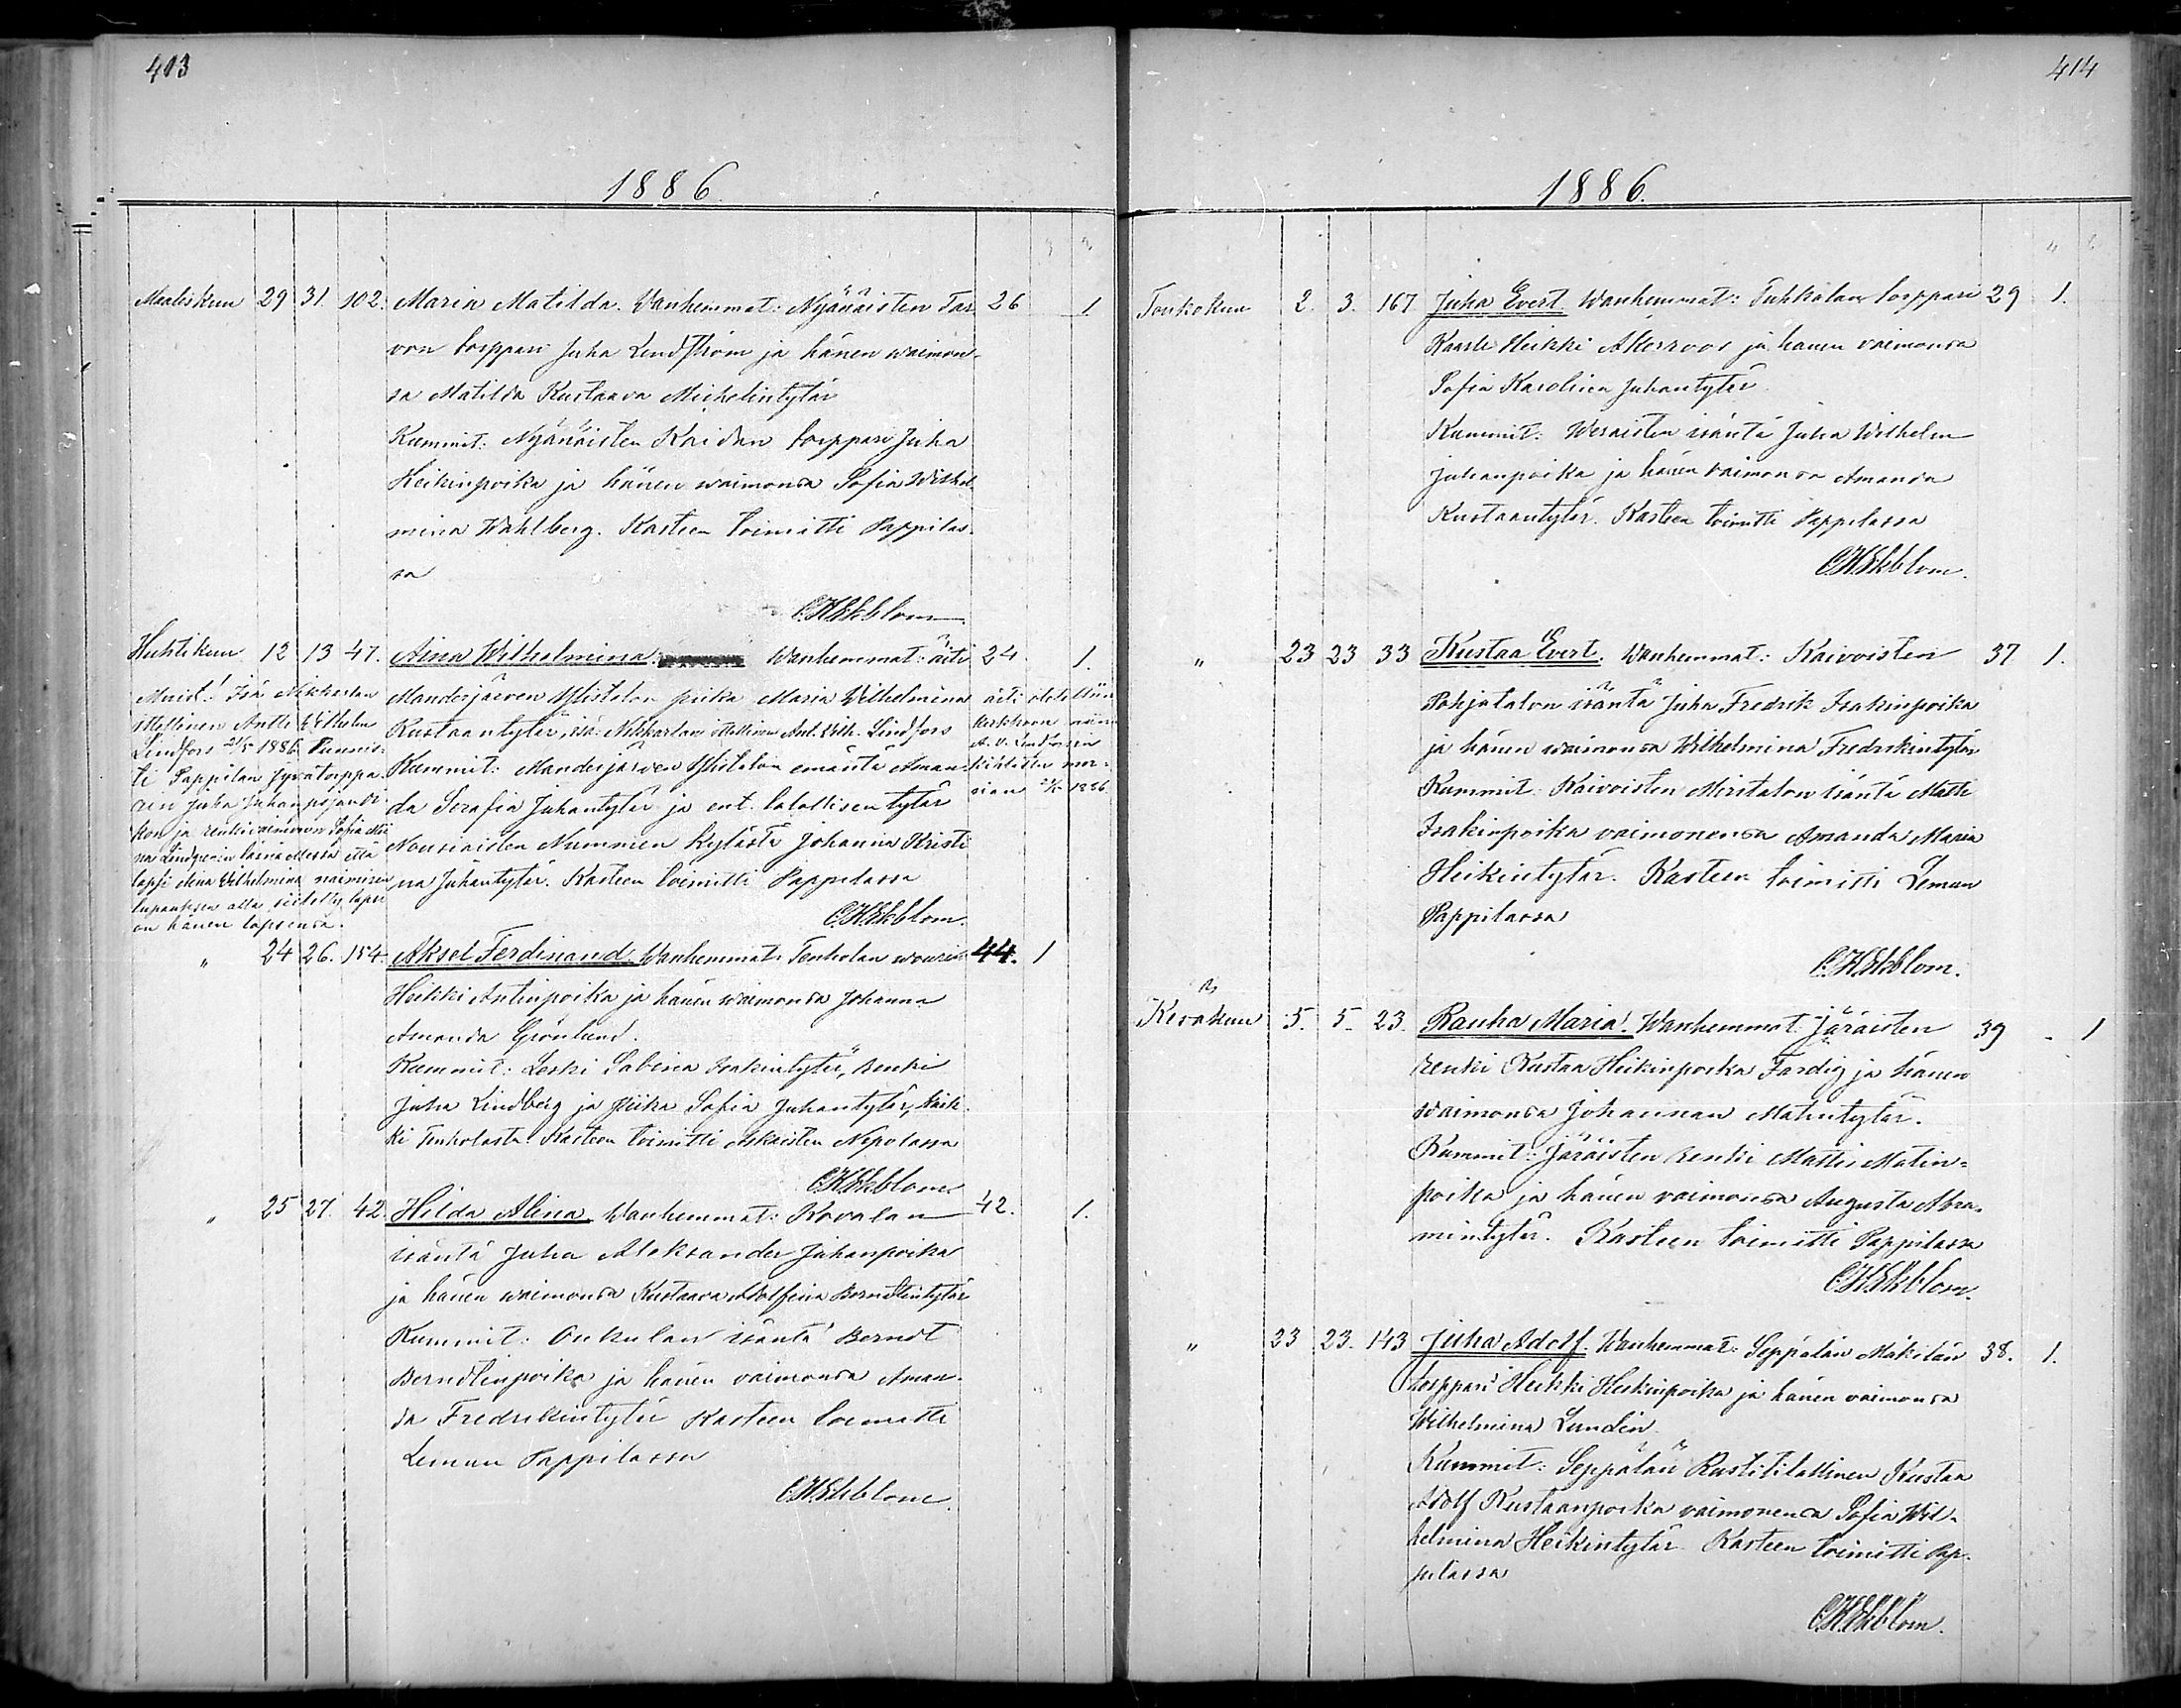 413
1886
Maaliskuu 29 31. 102. Maria Matilda. Vanhemmat: Nyänäisten Tar 26 1.
von torppari Juha Lindström ja hänen waimon-
sa Matilda Kustaava Michelintytär
Kummit: Nyänäisten Kaidan torppari Juha
Heikinpoika ja hänen waimonsa Sofia Wilhel-
mina Wahlberg. Kasteen toimitti Pappilas-
sa
C.H.Ekblom
Huhtikuu 12 13 47. Aina Wilhelmina. Wanhemmat: äiti 24. 1.
Muist! Isä
Manderjärven Ylistalon piika Maria Wilhelmina
Antti Wilhelm
Kustaantytär, isä: Ant. Wilh. Lindfors
Lindfors 21/5 1886 Tunnis-
ti Pappilan torppa
Kummit: Manderjärven Ylistalon emäntä Aman-
rin Juha Juhanpojan
da Serafia Juhantytär ja ent. talollisen tytär
kon ja renkivaimon Sofia Mii
Nousiaisten Nummen kylästä Johanna Kristi
na Lindgrenin läsnäollessa että
lapsi Aina Wilhelmina
na Juhantytär. Kasteen toimitti Pappilassa
lupauksen alla siitetty lapsi
on hänen lapsensa.
C.H.Ekblom.
" 24 26. 154. Aksel Ferdinand. Wanhemmat: Tenholan 44. 1
Heikki Antinpoika ja hänen waimonsa Johanna
Amanda Grönlund.
Kummit: Leski Sabina Isakintytär, renki
Juha Lindberg ja piika Sofia Juhantytär, kaik-
ki Tenholasta. Kasteen toimitti Askaisten Nepolassa
C.H.Ekblom
" 25 27. 42. Hilda Alina. Wanhemmat: Kovalan 42. 1.
isäntä Juha Aleksander Juhanpoika
ja hänen waimonsa Kustaava Adolfina Berndtintytär
Kummit: Oukulan isäntä Berndt
Berndtinpoika ja hänen vaimonsa Aman-
da Fredrikintytär Kasteen toimitti
Lemun Pappilassa
C.H.Ekblom.
414
1886.
Toukokuu 2. 3. 167 Juha Evert. Wanhemmat: Tuhkalan torppari 29 1.
Kaarle Heikki Akerroos ja hänen vaimonsa
Sofia Karolina Juhantytär
Kummit: Weraisten isäntä Juha Wilhelm
Juhanpoika ja hänen vaimonsa Amanda
Kustaantytär. Kasteen toimitti Pappilassa
C.H.Ekblom.
" 23 23 33 Kustaa Evert. Wanhemmat: Kaivoisten 37 1.
Pohjatalon isäntä Juha Fredrik Isakinpoika
ja hänen waimonsa Wilhelmina Fredrikintytär
Kummit: Kaivoisten Miritalon isäntä Matti
Isakinpoika vaimonensa Amanda Maria
Heikintytär. Kasteen toimitti Lemun
Pappilassa
C.H.Ekblom.
Kesäkuu 5. 5. 23. Rauha Maria. Wanhemmat: Järäisten 39 - 1
renki Kustaa Heikinpoika Färdig ja hänen
waimonsa Johannan Matintytär.
Kummit: Järäisten renki Matti Matin-
poika ja hänen vaimonsa Augusta Abra-
mintytär. Kasteen toimitti Pappilassa
C.H.Ekblom.
" 23 23. 143 Juha Adolf. Wanhemmat: Seppälän Mäkilän 38. 1.
torppari Heikki Heikinpoika ja hänen vaimonsa
Wilhelmina Lundén.
Kummit: Seppälän Rustitilallinen Kustaa
Adolf Kustaanpoika vaimonensa Sofia Wil-
helmina Heikintytär. Kasteen toimitti Pap-
pilassa
C.H.Ekblom.